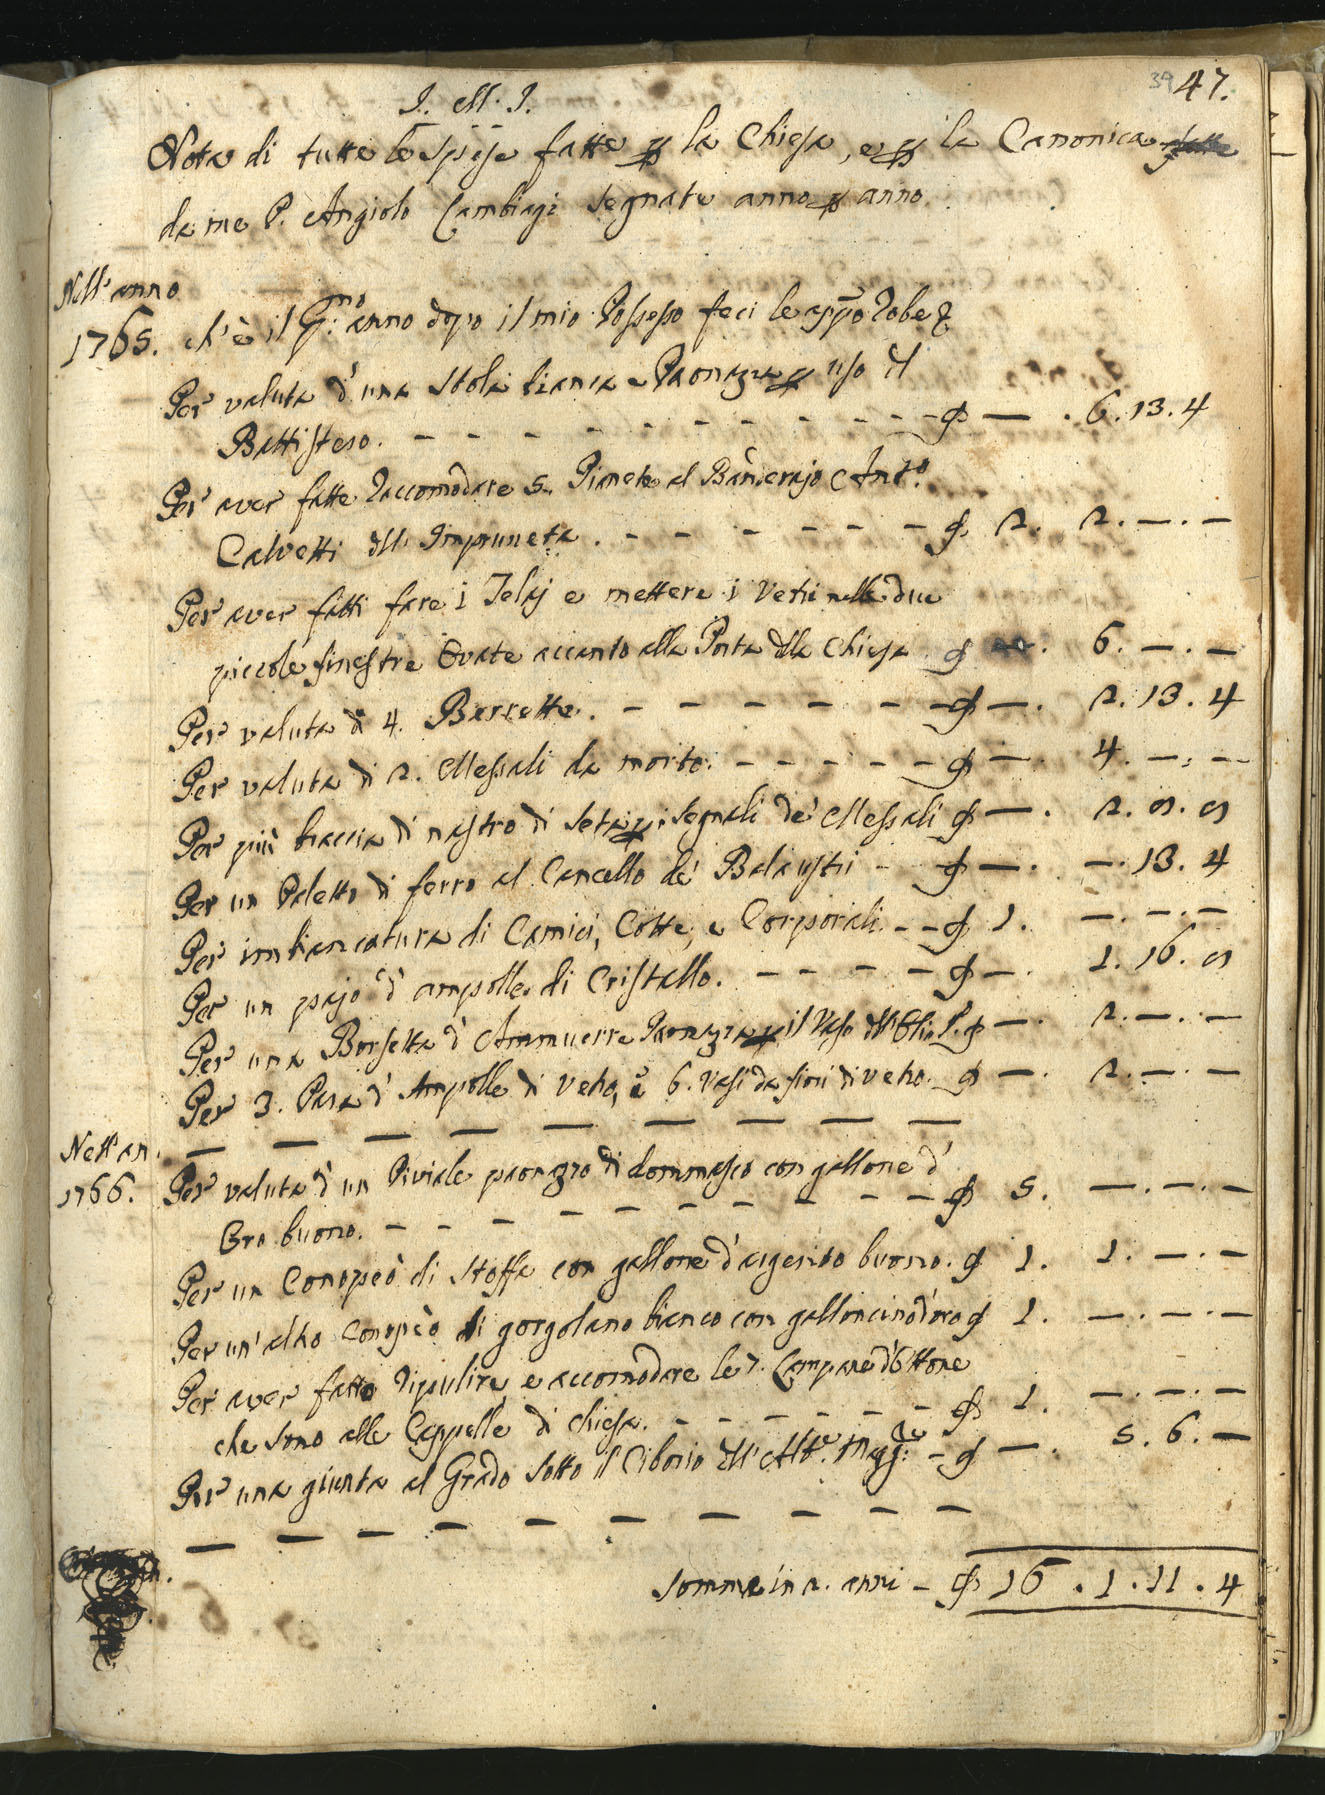 39 47.
J. M. J.
Nota di tutte le spese fatte p la Chiesa, e p la Canonica
da me P. Angiolo Cambiagi segnate anno p anno.
Nell'anno
1765. ch'è il Pmo: anno dopo il mio Possesso feci le appo robe
Per valuta d'una Stola bianca e Paonazza p uso dl
Battistero. - - - - - - - - - - φ — . 6. 13. 4
Per aver fatte raccomodare 5. Pianete al Banderajo Anto.
Calvetti dll' Impruneta . - - - - - - φ 2. 2. —. —
Per aver fatti fare i Telaj e mettere i Vetri nelle due
piccole finestre Ovate accanto alla Porta dlla Chiesa φ 6. —. —
Per valuta di 4. Berrette. - - - - - - φ —. 2. 13. 4
Per valuta di 2. Messali da morto. - - - - - φ —. 4. —. —
Per più braccia di nastro di seta p i segnali de' Messali φ —. 2. 0. 0
Per un Paletto di ferro al Cancello de' Balaustri - φ —. —. 13. 4
Per imbiancatura di Camici, Cotte, e Corporali. - - φ 1. —. —. —
Per un pajo d'ampolle di Cristallo. - - - - φ —. 1. 16. 0
Per una Borsetta d'Ammuerre Paonazza p il Vaso dll'Olio S. φ —. 2. —. —
Per 3. Para d'Ampolle di vetro, e 6. Vasi da fiori di vetro. φ —. 2. —. —
Nell'an.
1766. Per valuta d'un Piviale paonazzo di dommasco con gallone d'
Oro buono. - - - - - - - - - φ 5. —. —. —
Per un Conopeo di Stoffa con gallone d'argento buono. φ 1. 1. —. —
Per un'altro Conopèo di gorgolano bianco con galloncino d'oro φ 1. —. —. —
Per aver fatto ripulire e accomodare le 7. Campane d'Ottone
che sono alle Cappelle di Chiesa. - - - - - φ 1. —. —. —
Per una giunta al Grado sotto il Ciborio dll' Alte. Maggre: - φ —. 5. 6. —
Somma in 2. anni - φ 16 . 1 . 11 . 4